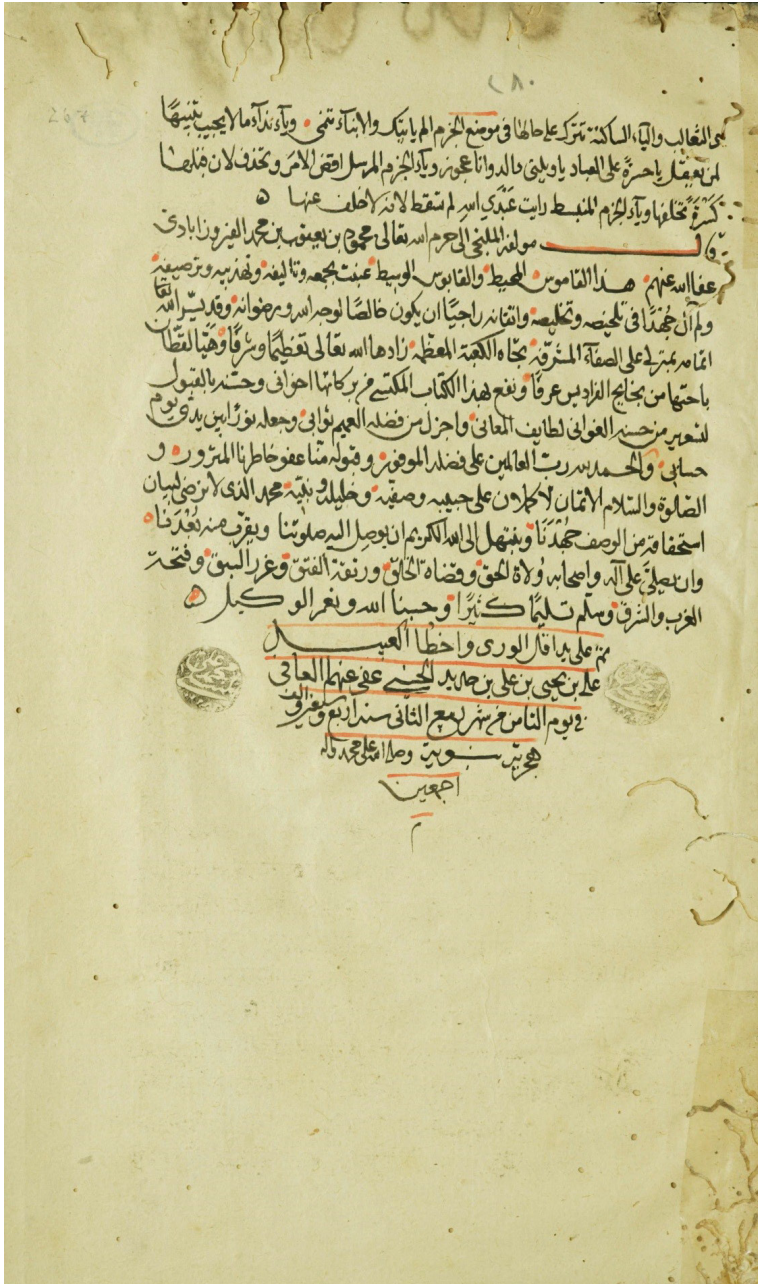 ٢٨٠
267
من الثعالب والياء الساكنة تترك على حالها في موضع الجزم الم يأتيك والانباء تنمى وياء نداء ما لا يجيب تشبيهًا
لمن يعقل يا حسرةً على العباد يا ويلتى ءالد وانا عجوز وياء الجزم المرسل اقض الامر وتحذف لان قبلها
كسرةً تخلفها وياء الجزم المنبسط رايت عبدي الله لم تسقط لانه لا خلف عنها ه
قال مولفه الملتجئ الى حرم الله تعالى محمد بن يعقوب بن محمد الفيروزابادى
عفا الله عنهم هذا القاموس المحيط والقابوس الوسيط عنيت بجمعه وتاليفه وتهذيبه وترصيفه
ولم آل جهدًا في تلخيصه وتخليصه واتقانه راجيًا ان يكون خالصًا لوجه الله ورضوانه وقد يسّر الله تعالى
اتمامه بمنزلي على الصفا المشرفة تجاه الكعبة المعظمة زادها الله تعالى تعظيمًا وشرفًا وهيّا لقطّان
باحتها من بحابح الفراديس غرفًا ونفع بهذا الكتاب المكتسى من بركاتها اخوانى وحسّنه بالقبول
لتعير من حسنه الغوانى لطايف المعانى واجزل من فضله العميم ثوابى وجعله نورًا بين يدىّ يوم
حسابى والحمد لله رب العالمين على فضله الموفور وقبوله منّا عفو خاطرنا المنزور و
الصلوة والسلام الاتمان الاكملان على حبيبه وصفيه وخليله ونبيه محمد الذى لا نرضى لبيان
استحقاقه من الوصف جهدنا ونبتهل الى الله الكريم ان يوصل اليه صلوتنا ويقرّب منه بُعدنا
وان يصلى على آله واصحابه ولاة الحق وقضاة الخلق ورتقة الفتق وغرر السبق وفتحة
الغرب والشرق وسلم تسليمًا كثيرًا وحسبنا الله ونعم الوكيل ه
تم على يد اقل الورى واخطا العبيد
علي بن يحيى بن علي بن حديد الحسني عفى عنهم العافي
في يوم الثامن من شهر ربيع الثانى سنة اربع والف
هجرية نبوية وصلى الله على محمد وآله
اجمعين
م